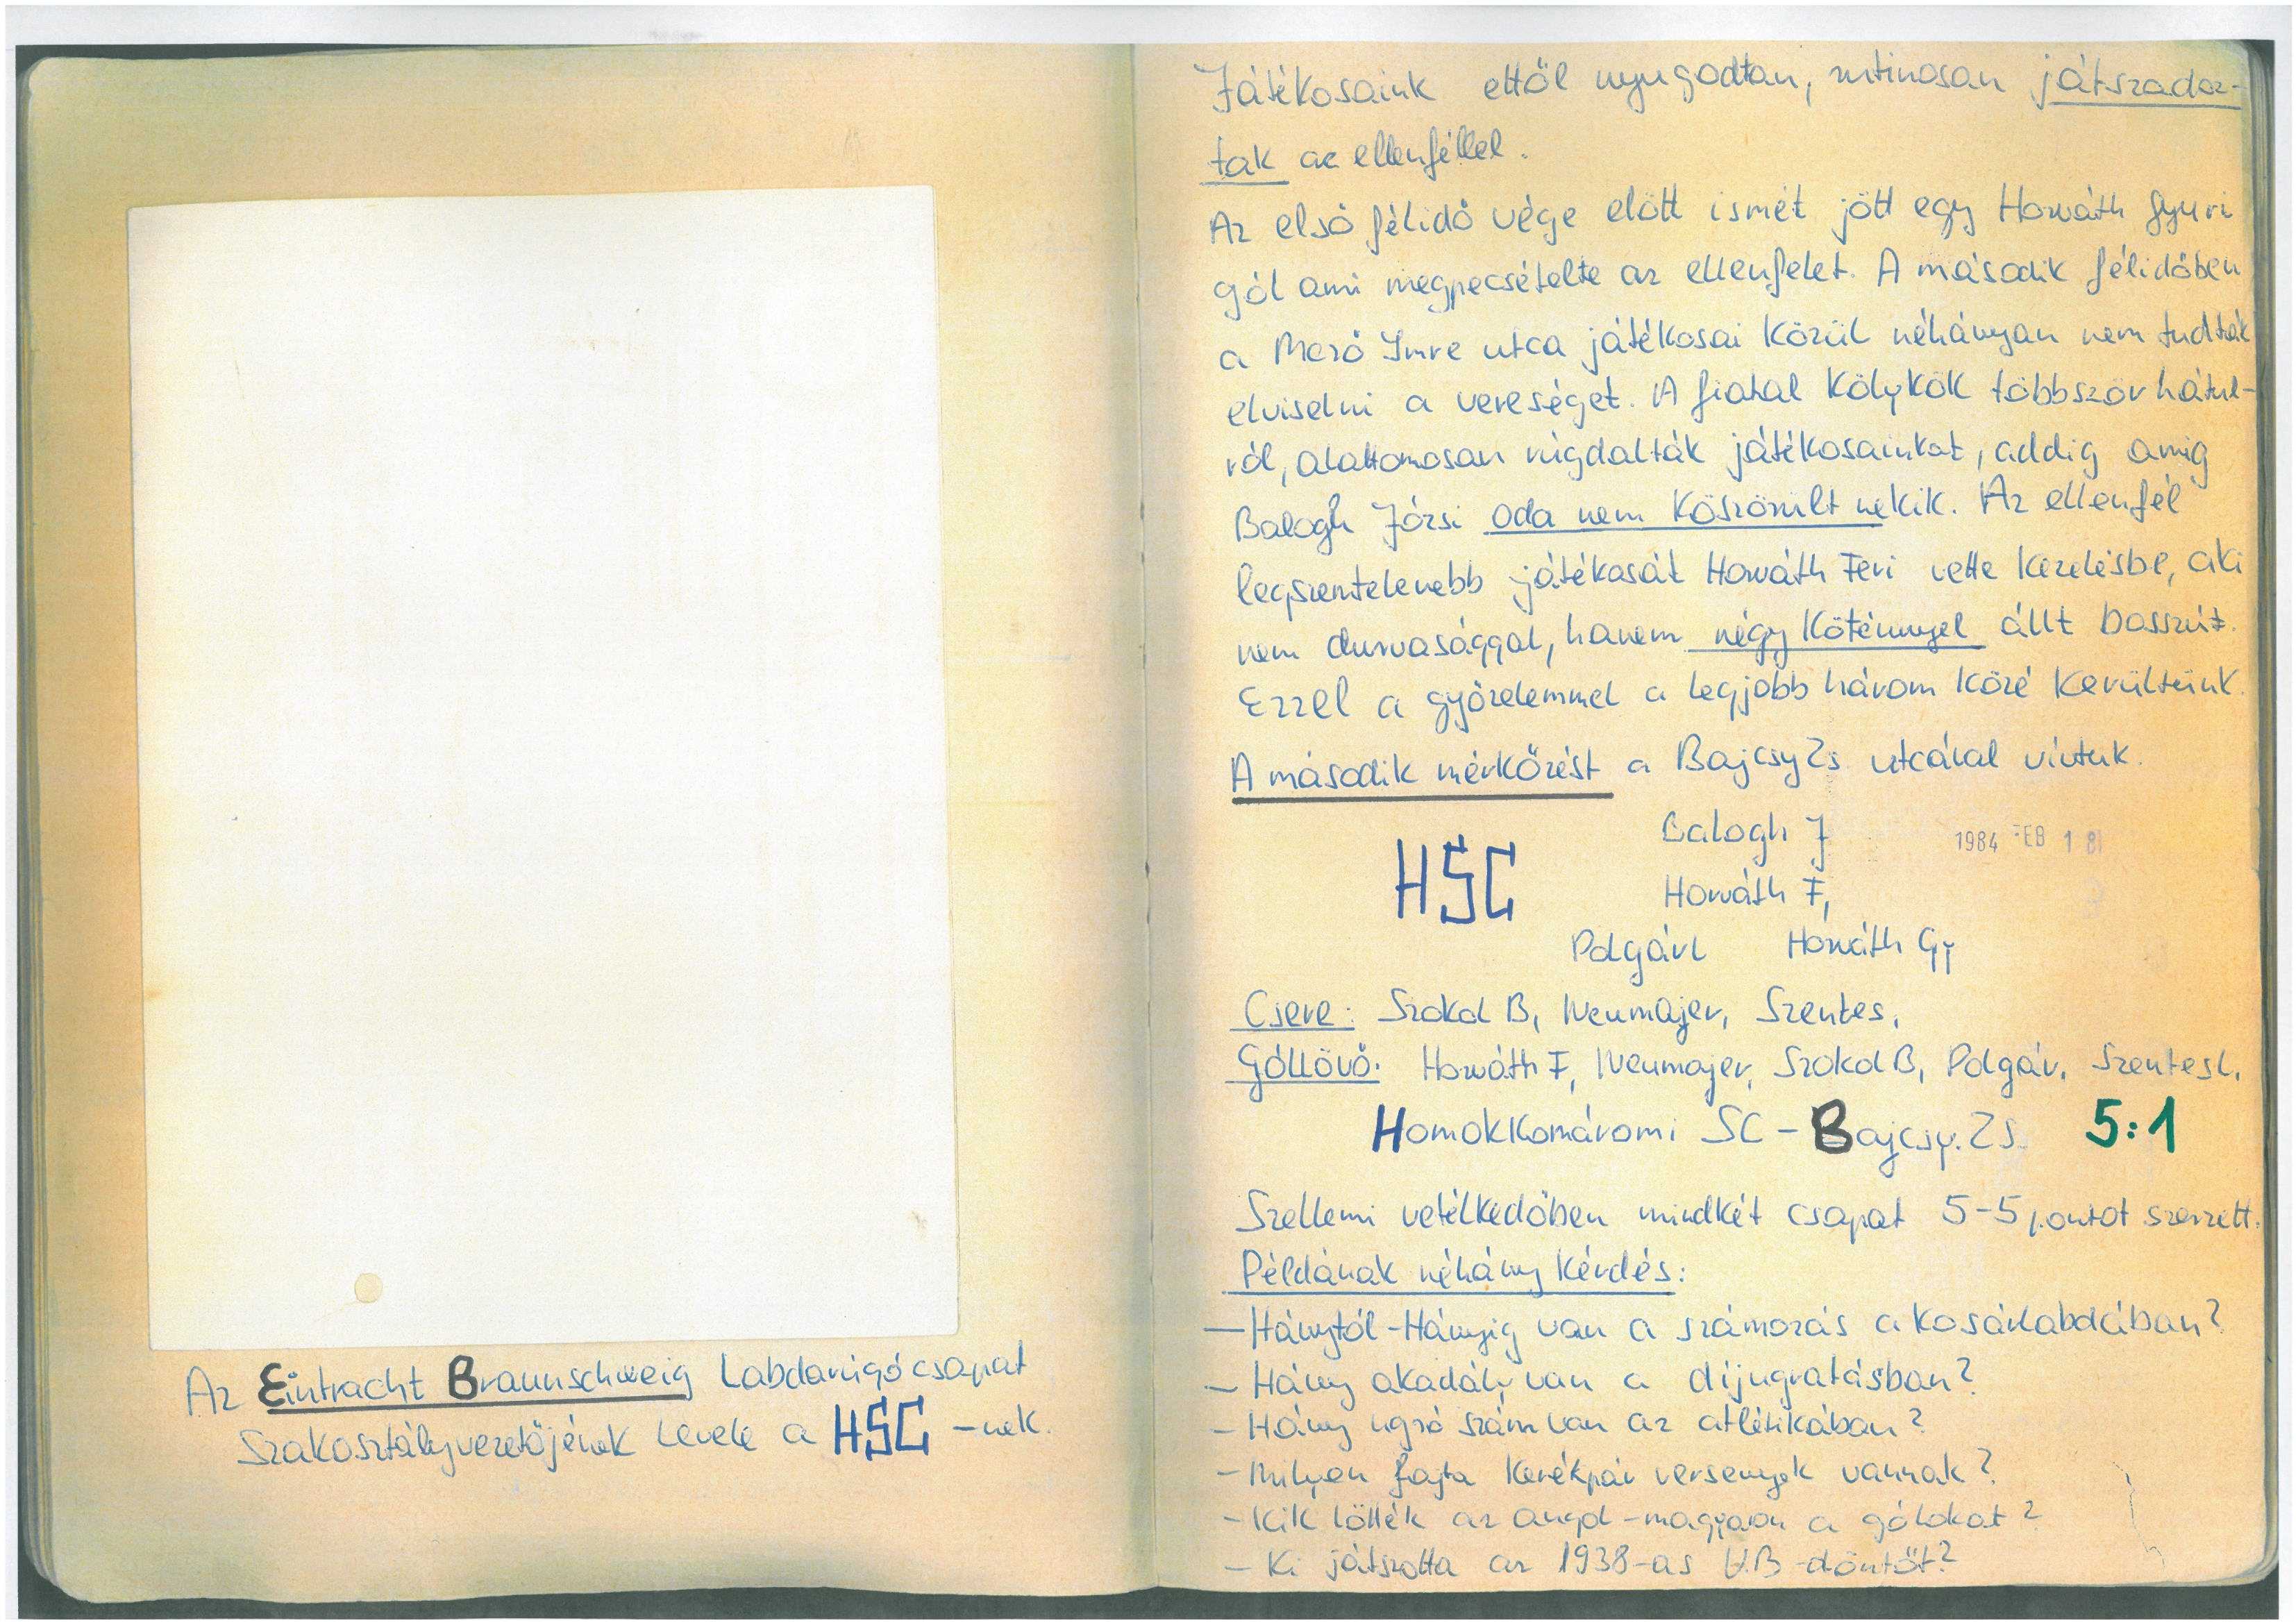 Az Eintracht Braunschweig Labdarúgó csapat
Szakosztályvezetőjének levele a HSC -nek.
Játékosaink ettől nyugodtan, rutinosan játszadoz-
tak az ellenféllel.
Az első félidő vége előtt ismét jött egy Horváth Gyuri
gól ami megpecsételte az ellenfelet. A második félidőben
a Mező Imre utca játékosai közül néhányan nem tudták
elviselni a vereséget. A fiatal kölykök többször hátul-
ról, alattomosan rúgdalták játékosainkat, addig amig
Balogh Józsi oda nem köszörült nekik. Az ellenfél
legszemtelenebb játékosát Horváth Feri vette kezelésbe, aki
nem durvasággal, hanem négy köténnyel állt bosszút.
Ezzel a győzelemmel a legjobb három közé kerültünk.
A második mérkőzést a Bajcsy Zs utcával vívtuk.
HSC
Balogh J
1984 FEB 18
Horváth F,
Polgár L Horváth Gy
Csere: Szokol B, Neumajer, Szentes,
Góllövő: Horváth F, Neumajer, Szokol B, Polgár, Szentes L,
Homokkomáromi SC - Bajcsy. Zs. 5:1
Szellemi vetélkedőben mindkét csapat 5-5 pontot szerzett.
Példának néhány kérdés:
— Hánytól - Hányig van a számozás a kosárlabdában?
- Hány akadály van a díjugratásban?
- Hány ugró szám van az atlétikában?
- Milyen fajta kerékpár versenyek vannak?
- Kik lötték az angol-magyaron a gólokat?
- Ki játszotta az 1938-as V.B-döntőt?